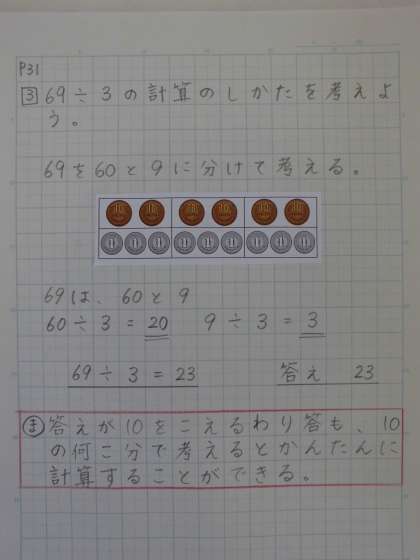 P31
3 69÷3の計算のしかたを考えよ
う。
69を60と9に分けて考える。
10 10 10 10 10 10
1 1 1 1 1 1 1 1 1
69は、60と9
60÷3=20 9÷3=3
69÷3=23 答え 23
ま 答えが10をこえるわり答も、10
の何こ分で考えるとかんたんに
計算することができる。